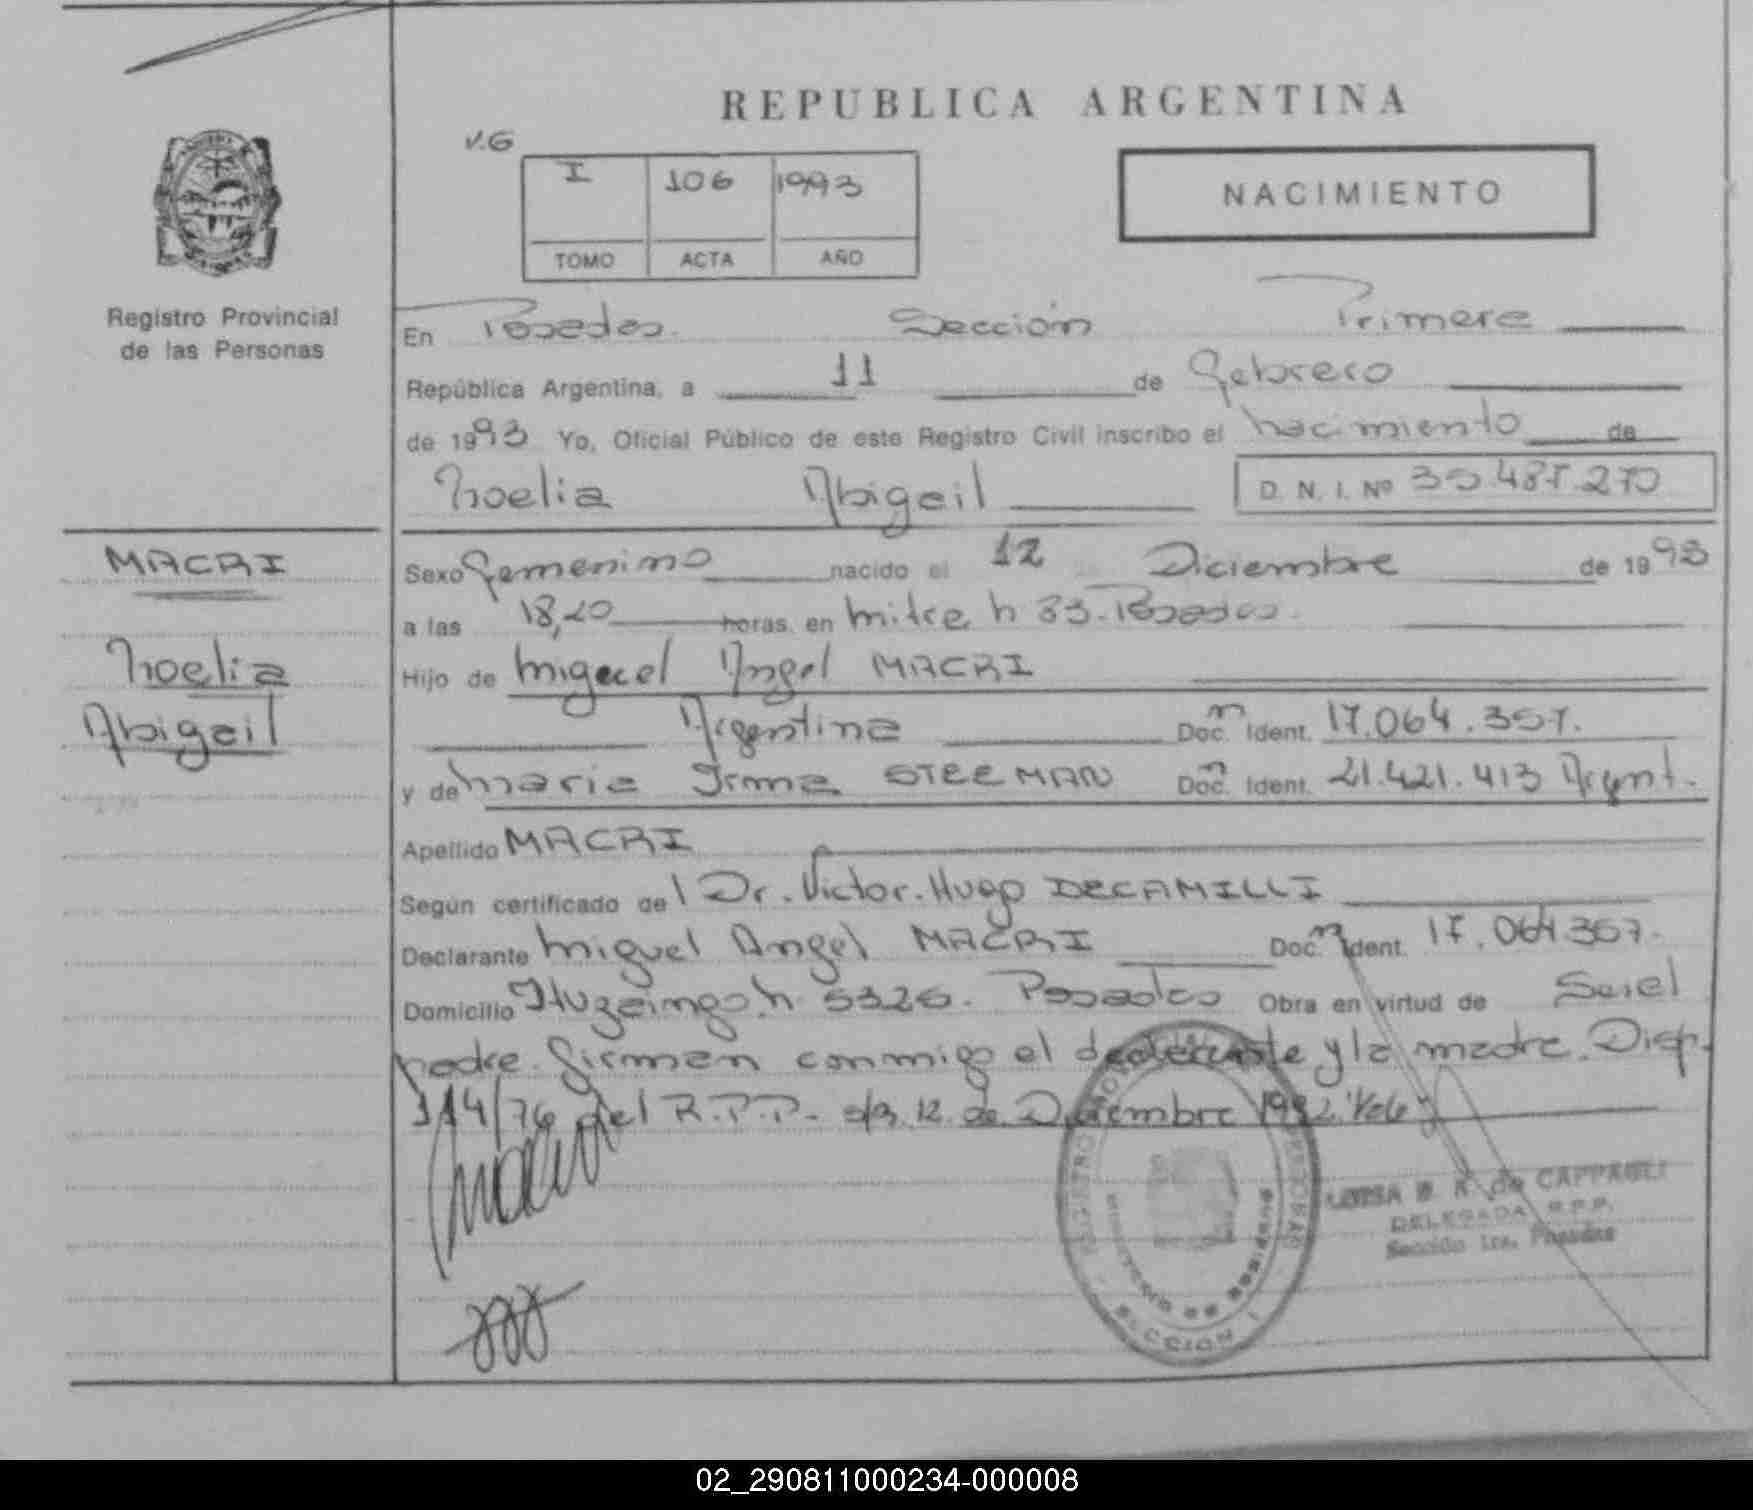 REPUBLICA ARGENTINA
V.G
I 106 1993
TOMO ACTA AÑO
NACIMIENTO
Registro Provincial
de las Personas
En Posadas. Sección Primera
República Argentina, a 11 de Febrero
de 1993 Yo, Oficial Público de este Registro Civil inscribo el nacimiento de
Noelia Abigail D. N. I. Nº
MACRI
Noelia
Abigail
Sexo Femenino nacido el 12 Diciembre de 1993
a las 18,20 horas, en Mitre n 83. Posadas.
Hijo de Miguel Angel MACRI
Argentina Doc. Ident. 17.064.357.
y de Maria Irma STEEMAN Doc. Ident. 21.421.413 Argent.
Apellido MACRI
Según certificado del Dr. Victor Hugo DECAMILLI
Declarante Miguel Angel MACRI Doc. Ident. 17.064.357.
Domicilio Ituzaingo n 5326. Posadas Obra en virtud de Ser el
padre. Firman conmigo el declarante y la madre. Disp.
114/76 del R.P.P. 12 de Diciembre 1992. Vale
REGISTRO PROVINCIAL
MINISTERIO DE GOBIERNO
SECCION 1
LUISA de CAPPAGLI
DELEGADA R.P.P.
Sección 1ra. Posadas
02_290811000234-000008